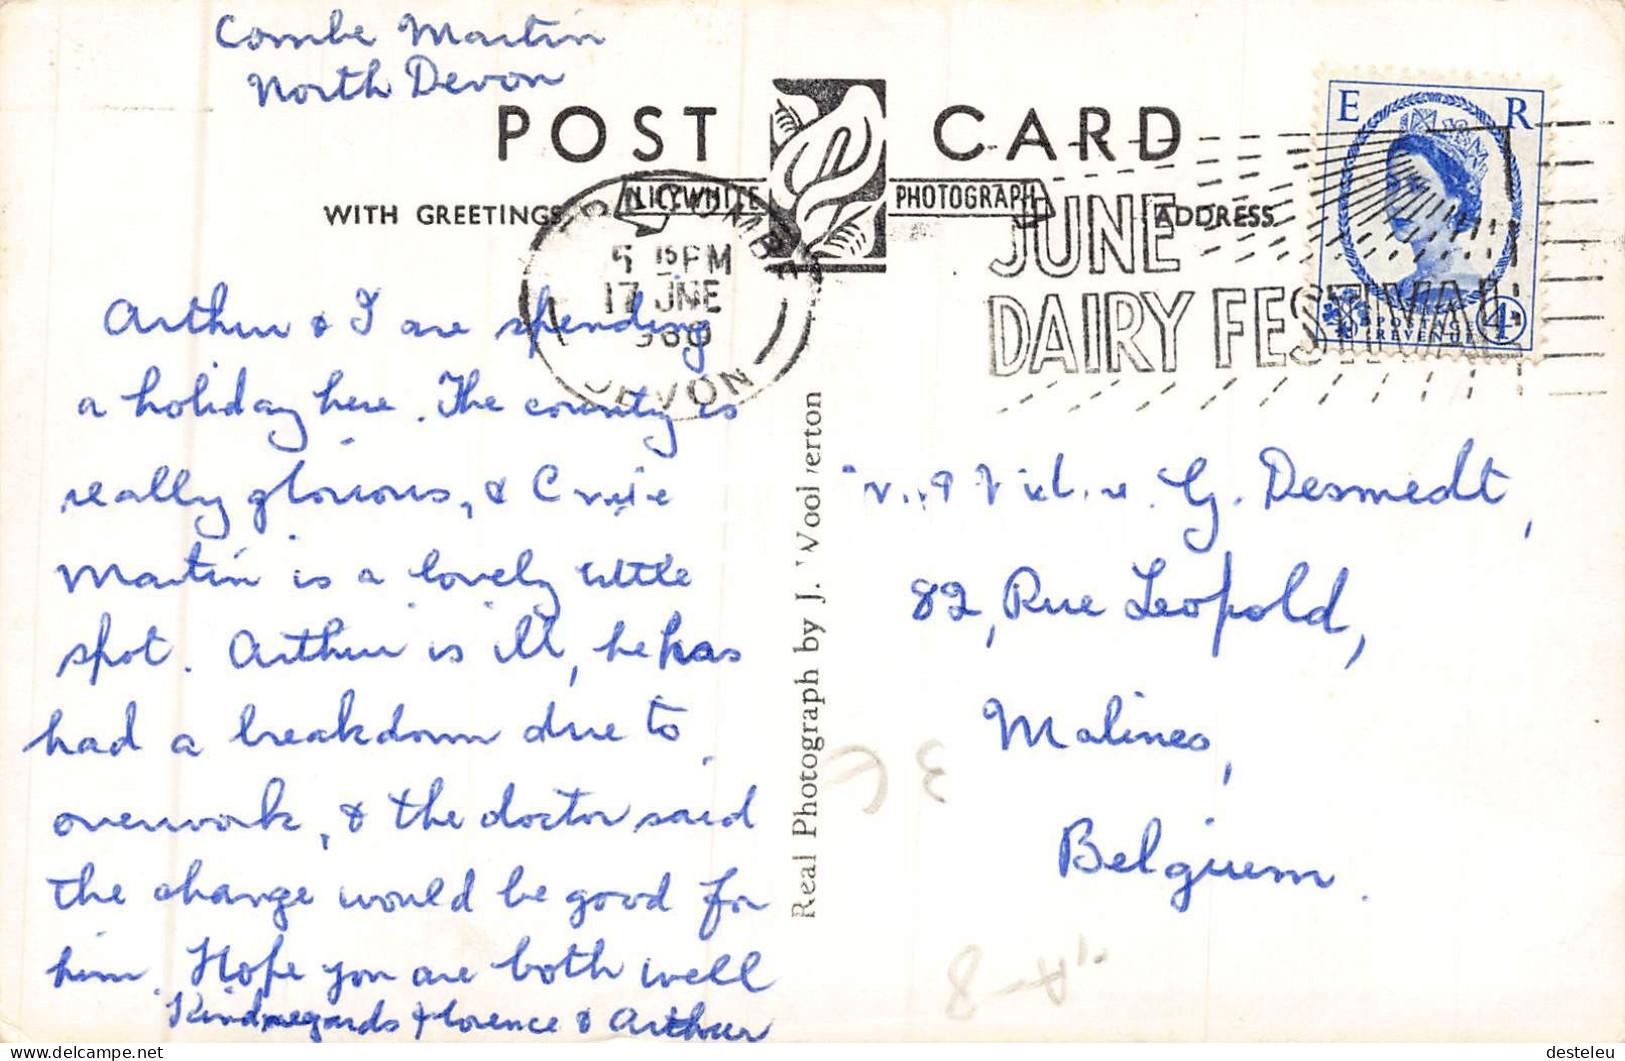 Combe Martin
North Devon
POST CARD
WITH GREETINGS
LILYWHITE
PHOTOGRAPH
ADDRESS
E R
POSTAGE
REVENUE
4D
5 PM
17 JNE
1960
DEVON
JUNE
DAIRY FESTIVAL
Arthur & I are spending
a holiday here. The country is
really glorious, & Combe
Martin is a lovely little
spot. Arthur is ill, he has
had a breakdown due to
overwork, & the doctor said
the change would be good for
him. Hope you are both well
Kind regards Florence & Arthur
Real Photograph by J. Woolverton
G. Desmedt,
82, Rue Leopold,
Malines,
Belgium.
3 €
A-8
desteleu